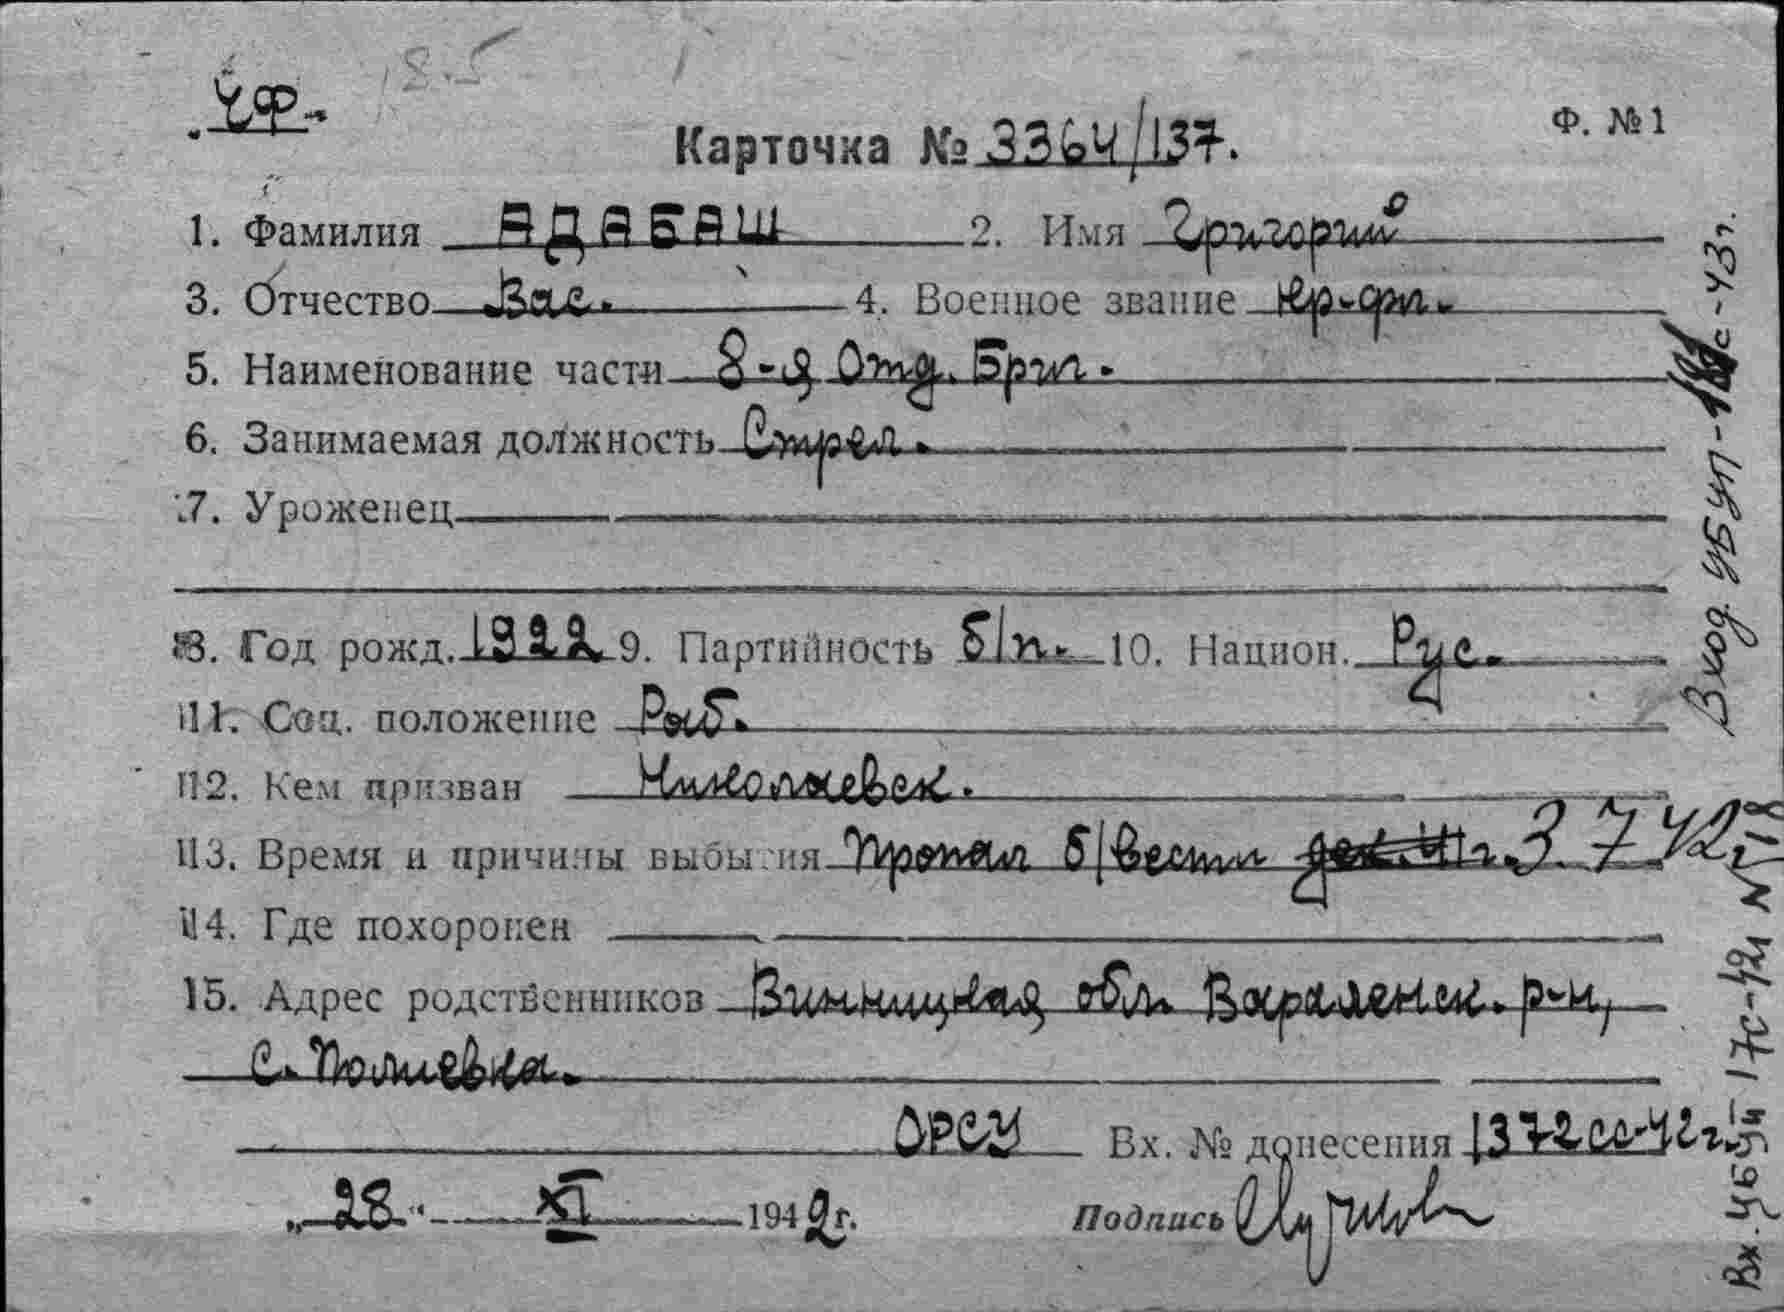 ЧФ.
Карточка № 3364/137.
Ф. № 1
1. Фамилия АДАБАШ 2. Имя Григорий
3. Отчество Вас. 4. Военное звание кр-фл.
5. Наименование части 8-я Отд. Бриг.
6. Занимаемая должность Стрел.
7. Уроженец
8. Год рожд. 1922 9. Партийность б/п. 10. Национ. Рус.
11. Соц. положение Раб.
12. Кем призван Николаевск.
13. Время и причины выбытия Пропал б/вести дек. 41 г. 3.7.42 г.
14. Где похоронен
15. Адрес родственников Винницкая обл. Вараленск. р-н,
с. Полиевка.
ОРСУ Вх. № донесения 1372сс-42 г.
„28“ XI 1942 г. Подпись
Вход УБУП- с-43 г.
Вх. УБУП 17с-42